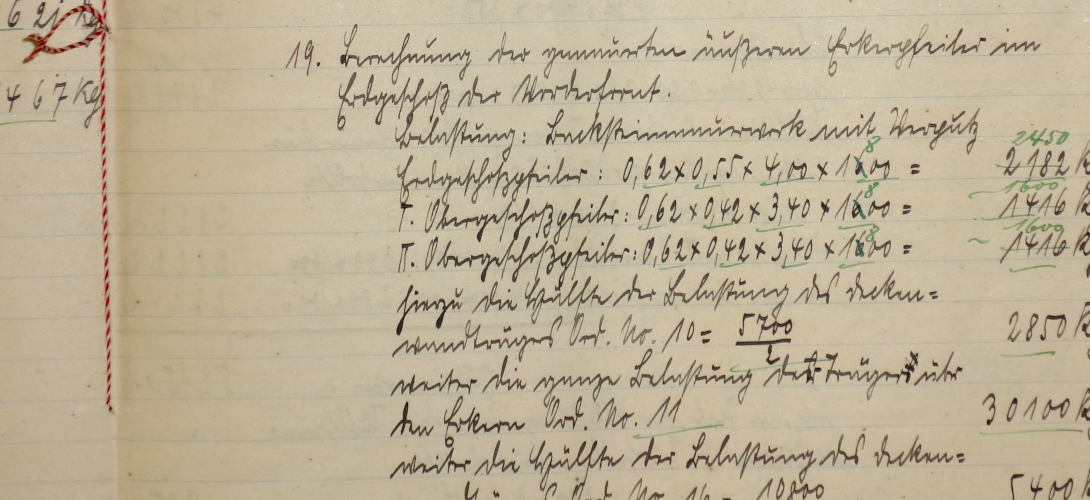 621 Kg
467 Kg
19. Berechnung der gemauerten äußeren Erkerpfeiler im
Erdgeschoß der Vorderfront.
Belastung: Backsteinmauerwerk mit Verputz
2450
Erdgeschoßpfeiler: 0,62 x 0,55 x 4,00 x 1800 = 2182 K
1600
I. Obergeschoßpfeiler: 0,62 x 0,42 x 3,40 x 1800 = 1416 K
1600
II. Obergeschoßpfeiler: 0,62 x 0,42 x 3,40 x 1800 = ~ 1416 K
hierzu die Hälfte der Belastung des decken=
wandträgers Ord. No. 10 = 5700/2 2850 K
weiter die ganze Belastung der Träger über
den Erkern Ord. No. 11 30100 K
weiter die Hälfte der Belastung des decken=
Ord. No. 16 = 10800 5400